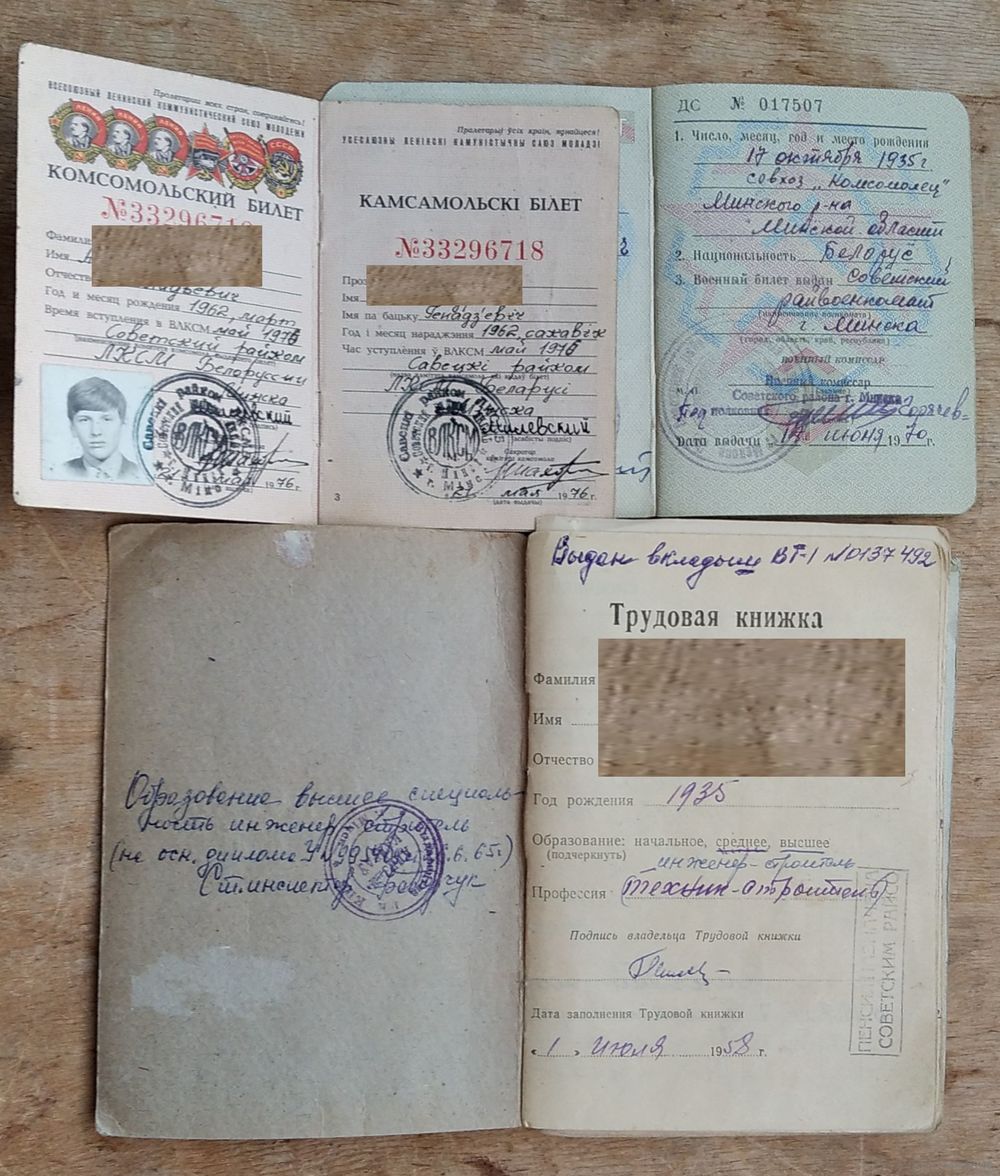 Пролетарии всех стран, соединяйтесь!
ВСЕСОЮЗНЫЙ ЛЕНИНСКИЙ КОММУНИСТИЧЕСКИЙ СОЮЗ МОЛОДЕЖИ
КОМСОМОЛЬСКИЙ БИЛЕТ
№33296718
Фамилия
Имя
Отчество
Год и месяц рождения 1962, март
Время вступления в ВЛКСМ май 1976
Советский райком
ЛКСМ Белоруссии
г. Минска
мая 1976 г.
Пралетарыі ўсіх краін, яднайцеся!
УСЕСАЮЗНЫ ЛЕНІНСКІ КАМУНІСТЫЧНЫ САЮЗ МОЛАДЗІ
КАМСАМОЛЬСКІ БІЛЕТ
№33296718
Імя
Імя па бацьку Генадзьевіч
Год і месяц нараджэння 1962, сакавік
Час уступлення ў ВЛКСМ май 1976
Савецкі райком
Беларусі
(асабісты подпіс)
Сакратар
камітэта камсамола
мая 1976 г.
(дата выдачы)
3
ВЛКСМ
ДС № 017507
1. Число, месяц, год и место рождения
17 октября 1935 г
совхоз „Комсомолец"
Минского р-на
Минской области
2. Национальность Белорус
3. Военный билет выдан Советский
райвоенкомат
(наименование военкомата)
г. Минска
(город, область, край, республика)
ВОЕННЫЙ КОМИССАР
Военный комиссар
Советского района г. Минска
М.П.
Подполковник Горячев
Дата выдачи „17" июня 1970 г.
Образование высшее, специаль-
ность инженер-строитель
(на осн. диплома
Ст. инспектор
Выдан вкладыш ВТ-I №0137492
Трудовая книжка
Фамилия
Имя
Отчество
Год рождения 1935
Образование: начальное, среднее, высшее
(подчеркнуть)
инженер-строитель
Профессия (Техник-строитель)
Подпись владельца Трудовой книжки
Дата заполнения Трудовой книжки
«1» июля 1958 г.
СОВЕТСКИМ